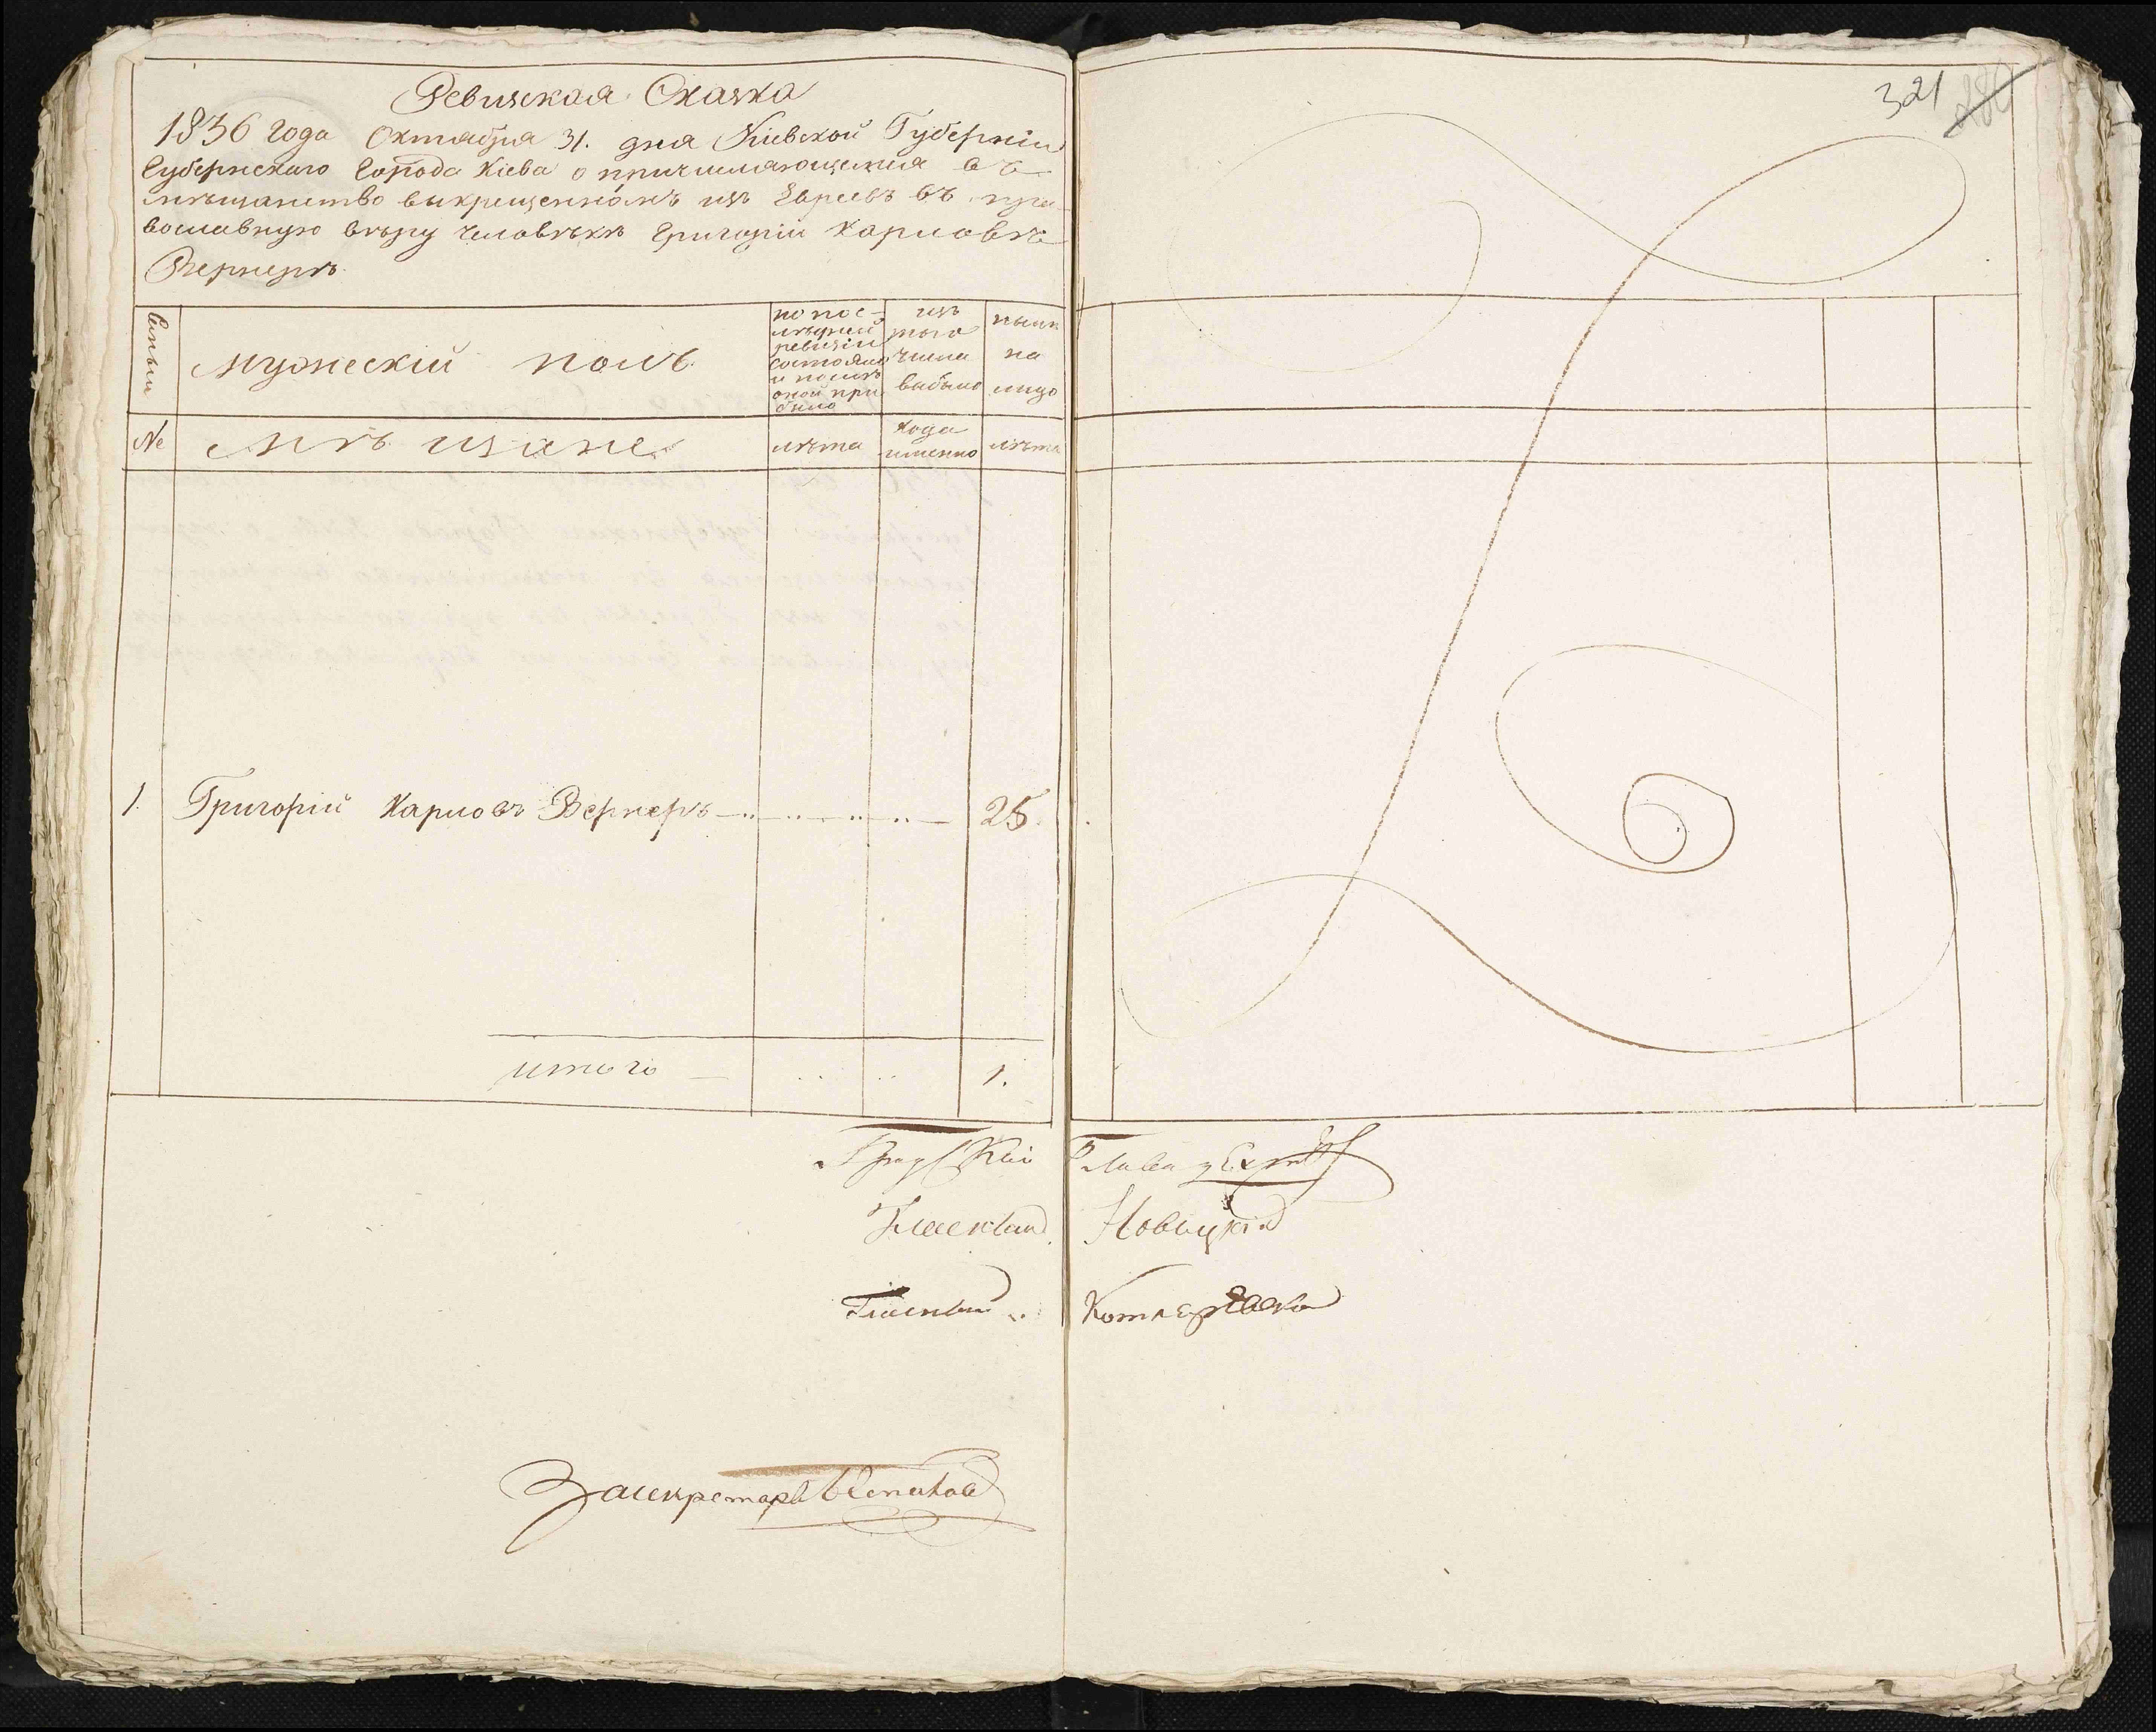 Ревизская Сказка
1836 года Октября 31. дня Кіевской Губерніи
Губернскаго Города Кіева о причисляющемся въ
мѣщанство выкрещенномъ изъ Евреевъ въ пра-
вославную вѣру человѣкѣ Григоріи Карловѣ
Вернерѣ.
Семьи
мужескій полъ.
по пос-
лѣдней
ревизіи
состояло
и послѣ
оной при
было
изъ
того
числа
выбыло
нынѣ
на
лицо
№
Мѣщане
лѣта
когда
именно
лѣта
1. Григорій Карловъ Вернеръ 25.
итого 1.
Гласный Новицкій
Гласный
Засекретаря
321